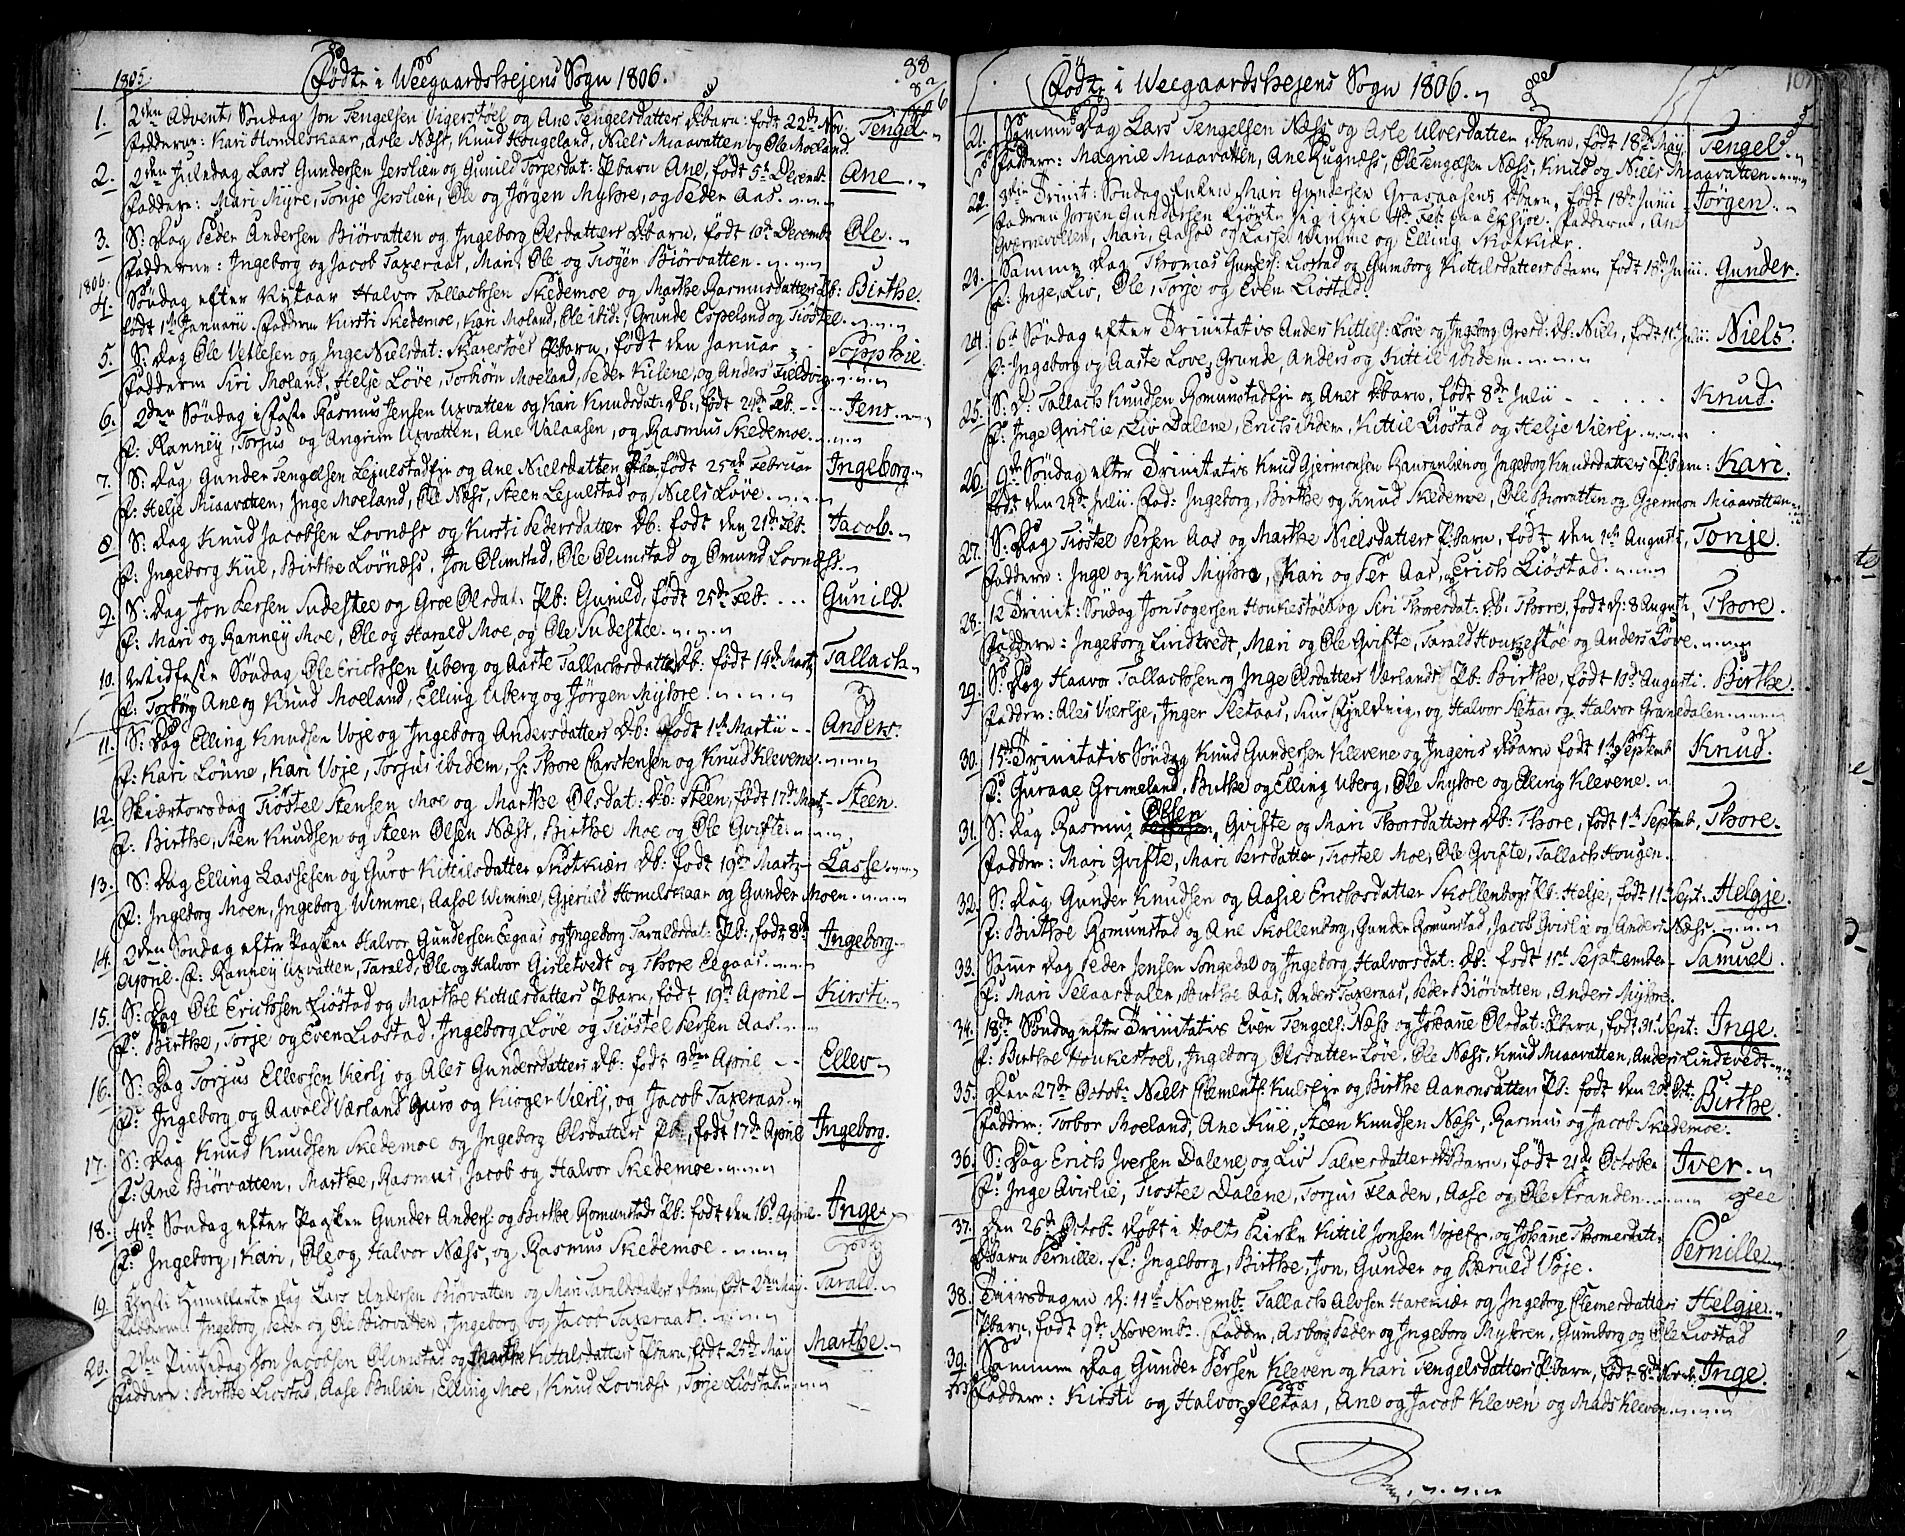 1805. Fødte i Weegaardsheiens Sogn 1806. 88
1. 2den Advent Søndag Jon Tengelsen Vigerstøel og Ane Tengelsdatters Dbarn: født 22de Nov. Tengel.
Fadderne: Kari Homelskaar, Asle Næss, Knud Hougeland, Niels Miaavatten og Ole Moeland.
2. 2den Juledag Lars Gundersen Jerslien og Gunild Torjersdat: Pbarn Ane, født 5te Decemb. Ane.
Faddere: Mari Myre, Tonje Jerslien, Ole og Jørgen Myhre, og Peder Aas.
3. S: Dag Peder Andersen Biørvatten og Ingeborg Olsdatters Dbarn, født 10de Decembr Ole.
Fadderne: Ingeborg og Jacob Taxeraas, Mari, Ole og Tiøger Biørvatten.
1806.
4. Søndag efter Nytaar Halvor Tallachsen Skedemoe og Marthe Rasmusdatters Pb: Birthe.
født 1te Januarii. Fadderne Kirsti Skedemoe, Kari Moland, Ole ibid:, Grunde Espeland og Tiøstel.
5. S: Dag Ole Vetlesen og Inge Nielsdat: Skarestøes Pbarn, født den Januar Sopphie.
Fadderne Siri Moland, Helje Løve, Torbiørn Moeland, Peder Kilene, og Anders Fieldvig.
6. 2den Søndag i Faste Rasmus Jensen Uxvatten og Kari Knudsdat: Db:, født 24de Feb. Jens.
F: Ranney, Torjus og Angrim Uxvatten, Ane Valaasen, og Rasmus Skedemoe.
7. S: Dag Gunder Tengelsen Lejulstadfje og Ane Nielsdatters Pbarn født 25de Februar Ingeborg.
F: Helje Miaavatten, Inge Moeland, Ole Næss, Steen Lejulstad og Niels Løve.
8. S: Dag Knud Jacobsen Lovnæss og Kirsti Pedersdatter Db: født den 21de Feb. Jacob.
F: Ingeborg Kiil, Birthe Løvnæss, Jon Olimstad, Ole Olimstad og Omund Lovnæss.
9. S: Dag Jon Persen Sudestee og Groe Olsdat: Pb: Gunild, født 25de Feb. Gunild.
F: Mari og Ranney Moe, Ole og Harald Moe, og Ole Sudestee.
10. Midfaste Søndag, Ole Erichsen Uberg og Aaste Tallachsdatters Db: født 14de Martz Tallach.
F: Torbørg Ane og Knud Moeland, Elling Uberg og Jørgen Myhre.
11. S: Dag Elling Knudsen Voje og Ingeborg Andersdatters Db: født 1te Martii Anders.
F: Kari Lønne, Kari Voje, Torjus ibidem, H: Thore Carstensen og Knud Klevene.
12. Skiærtorsdag Tiøstel Stensen Moe og Marthe Olsdat: Db: Steen, født 17de Martz Steen.
F: Birthe, Sten Knudsen og Steen Olsen Næss, Birthe Moe og Ole Gvifte.
13. S: Dag Elling Lassesen og Guro Kittilsdatter Skotkiær Db: født 19de Martz Lasse.
F: Ingeborg Moen, Ingeborg Wimme, Aasol Wimme, Gjeruld Homelskaar og Gunder Moen.
14. 2den Søndag efter Paaske Halvor Gundersen Eegaas og Ingeborg Taraldsdat: Pb:, født 8de Ingeborg
April. F: Ranney Uxvatten, Tarald, Ole og Halvor Gisletvedt og Thore Eegaas.
15. S: Dag Ole Erichsen Liøstad og Marthe Kittilsdatters Pbarn, født 19de April Kirsti.
F: Birthe, Torje og Even Liostad, Ingeborg Løve og Tiøstel Persen Aas.
16. S: Dag Torjus Ellevsen Vierlj og Ales Gundersdatters Db: født 3die April Ellev
F: Ingeborg og Aavold Værland, Guro og Kioger Vierlj, og Jacob Taxeraas.
17. S: Dag Knud Knudsen Skedemoe og Ingeborg Olsdatters Pb:, født 17de April Ingeborg.
F: Ane Biørvatten, Marthe, Rasmus, Jacob og Halvor Skedemoe.
18. 4de Søndag efter Paasken Gunder Anders: og Birthe Romunstads Pb: født den 16de April Inge.
F: Ingeborg, Kari, Ole og Halvor Næss, og Rasmus Skedemoe.
19. Christi Himmelfarts Dag Lars Andersen Biørvatten og Mari Taraldsdatters Dbarn, født 2den Maij Tarald.
Fadderne Ingeborg, Peder og Ole Biørvatten, Ingeborg og Jacob Taxeraas.
20. 2den Pintsedag Jon Jacobsen Olimstad og Marthe Kittilsdatters Pbarn, født 25de Maij Marthe.
Faddere: Birthe Liostad, Aase Bulien, Elling Moe, Knud Lovnæss, Torje Liøstad.
Fødte i Weegaardsheiens Sogn 1806.
21. Samme Dag Lars Tengelsen Næss og Asle Ulvesdatters Dbarn, født 18de Maij Tengel.
Faddere: Magnil Miaavatten, Ane Rugnæss, Ole Tengelsen Næss, Knud og Niels Miaavatten.
22. 3die Trinit: Søndag Enken Mari Gundersen Graasaasens Dbarn, født 18de Junii Jørgen.
Faderen Jørgen Gundersen Ejørte sig ihiel 4de Feb. paa Exsioe. Fadderne, Ane
Gvernevolten, Mari, Aasol og Lasse Wimme og Elling Skotkiær.
23. Samme Dag Thomas Gunders: Liostad og Gunborg Kittilsdatters Barn født 18de Junii. Gunder.
F: Inge, Liv, Ole, Torje og Even Liostad.
24. 6te Søndag efter Trinitatis Anders Kittils: Løve og Ingeborg Gresd: Db: Niels, født 11te Julii: Niels.
F: Ingeborg og Aaste Løve, Grunde, Anders og Kittil ibidem.
25. S: D: Tallach Knudsen Romunstadfje og Anes Dbarn, født 8de Julii Knud.
F: Inge Grislie, Liv Dalene, Erich ibidem, Kittil Liøstad og Helje Vierlj.
26. 9de Søndag efter Trinitatis Knud Gjermonsen Ranranlien og Ingeborg Knudsdatters Pbarn: Kari.
født den 24de Julii. Fad: Ingeborg, Birthe og Knud Skedemoe, Ole Biørvatten og Gjermon Miaavatten.
27. S: Dag Tiøstel Persen Aas og Marthe Nielsdatters Pbarn, født den 1te Augusti, Tonje.
Faddere: Inge og Knud Myhre, Kari og Per Aas, Erich Liøstad.
28. 12 Trinit: Søndag Jon Togersen Houkestøl og Siri Thoresdat: Db: Thore, født d: 8 Augusti, Thore.
Faddere: Ingeborg Lindtvedt, Mari og Ole Gvifte, Tarald Houkestøe og Anders Løve.
29. S: Dag Haavor Tallachsen og Inge Olsdatters Værlands Pb: Birthe, født 10de Augusti. Birthe.
Fadder: Ales Vierlje, Inger Sletaas, Siur Fjeldvig, og Halvor Sletaas og Halvor Granedalen.
30. 15de Trinitatis Søndag Knud Gundersen Klevene og Ingeris Dbarn født 1te Septemb Knud.
F: Guraae Grimeland, Birthe og Elling Uberg, Ole Myhre og Elling Klevene.
31. S: Dag Rasmus Olsen Gvifte og Mari Thorsdatters Db: Thore, født 1te Septemb, Thore.
Faddere: Mari Gvifte, Mari Persdatter, Tiostel Moe, Ole Gvifte, Tallach Hougen.
32. S: Dag Gunder Knudsen og Aasie Erichsdatter Skollenborg Pb: Helje, født 11te Sept: Helgje.
F: Birthe Romunstad og Ane Skollenborg, Gunder Romunstad, Jacob Gvislie og Anders Næss.
33. Samme Dag Peder Jensen Songedal og Ingeborg Halvorsdat: Db: født 11te September Samuel.
F: Mari Selaasdalen, Birthe Aas, Anders Taxeraas, Peder Biørvatten, Anders Myhre.
34. 18de Søndag efter Trinitatis Even Tengels: Næss og Johane Olsdat: Pbarn, født 31 Sept: Inge.
F: Birthe Houkestoel, Ingeborg Olsdatter Løve, Ole Næss, Knud Miaavatten, Anders Lindtvedt.
35. Den 27de Octobr Niels Clements: Kulsfje og Birthe Aanonsdatters Pb: født den 20 Oct. Birthe.
Faddere: Torbor Moeland, Ane Kiil, Steen Knudsen Næss, Rasmus og Jacob Skedemoe.
36. S: Dag Erich Iversen Dalene, og Liv Salvesdatters Dbarn, født 21de October Iver.
F: Inge Qvislie, Tiostel Dalene, Torjus Fladen, Aase og Ole Stranden.
37. Den 26de Octob. Døbt i Holts Kirke Kittil Jonsen Vojefje, og Johane Thomesdatters
Dbarn Pernille. F: Ingeborg, Birthe, Jon, Gunder og Bæruld Voje. Pernille.
38. Tiirsdagen d: 11te Novembr Tallach Alvsen Harekiær og Ingeborg Clemetsdatters Helgje.
Pbarn, født 9de Novembr. Faddere, Asborg, Peder og Ingeborg Myhren, Gunborg og Ole Liostad
39. Sammen Dag Gunder Persen Kleven og Kari Tengelsdatters Pbarn, født 8de Novb, Inge.
Faddere: Kirsti og Halvor Sletaas, Ane og Jacob Kleven og Mads Kleven.